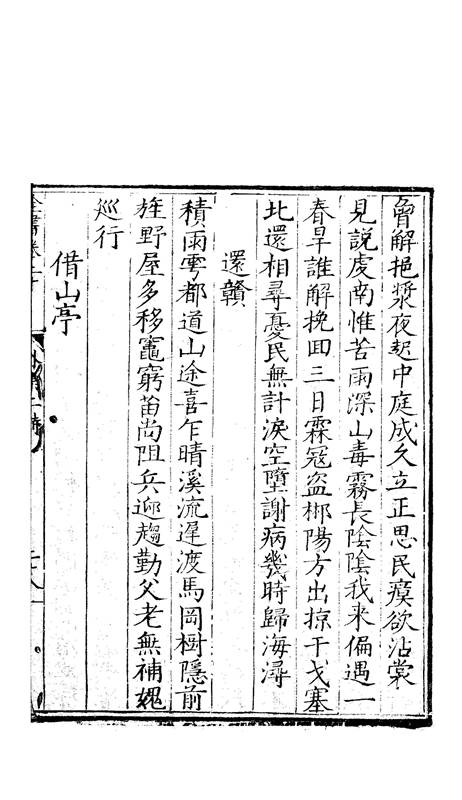 曾解挹漿夜起中庭成久立正思民瘼欲沾裳
見說虔南惟苦雨深山毒霧長陰陰我來偏遇一
春旱誰解挽回三日霖寇盗郴陽方出掠干戈塞
北還相尋憂民無計淚空墮謝病幾時歸海潯
還贛
積雨雩都道山途喜乍晴溪流遲渡馬岡樹隱前
旌野屋多移竈窮苗尚阻兵迎趨勤父老無補媿
巡行
借山亭